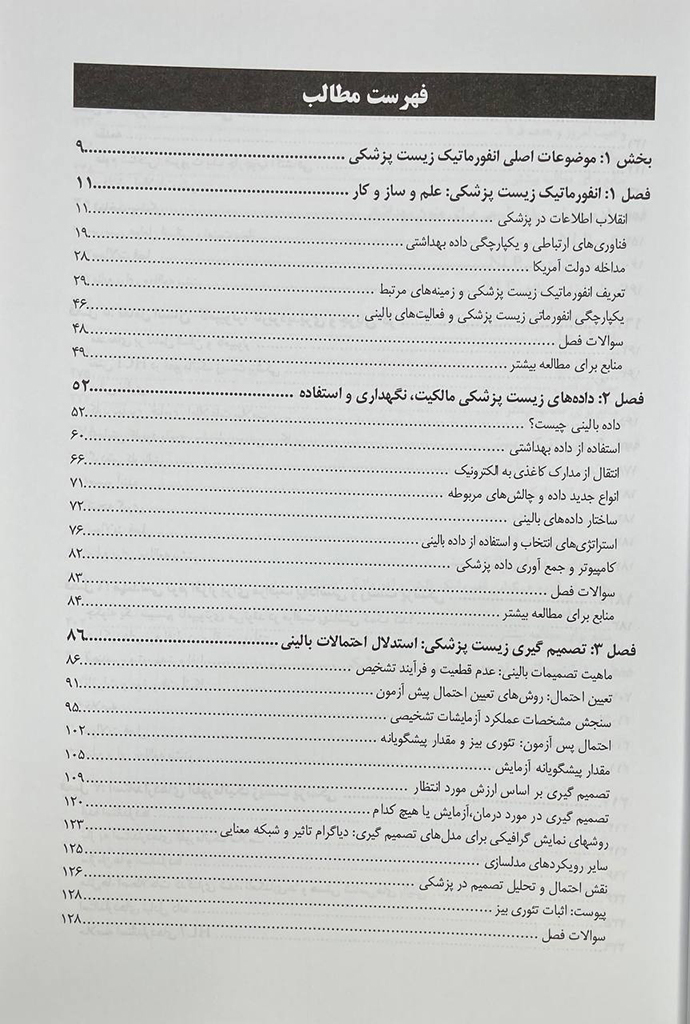 فهرست مطالب
بخش ۱: موضوعات اصلی انفورماتیک زیست پزشکی ........ ۹
فصل ۱: انفورماتیک زیست پزشکی: علم و ساز و کار ........ ۱۱
انقلاب اطلاعات در پزشکی ........ ۱۱
فناوری‌های ارتباطی و یکپارچگی داده بهداشتی ........ ۱۹
مداخله دولت آمریکا ........ ۲۸
تعریف انفورماتیک زیست پزشکی و زمینه‌های مرتبط ........ ۲۹
یکپارچگی انفورماتی زیست پزشکی و فعالیت‌های بالینی ........ ۴۶
سوالات فصل ........ ۴۸
منابع برای مطالعه بیشتر ........ ۴۹
فصل ۲: داده‌های زیست پزشکی مالکیت، نگهداری و استفاده ........ ۵۲
داده بالینی چیست؟ ........ ۵۲
استفاده از داده بهداشتی ........ ۶۰
انتقال از مدارک کاغذی به الکترونیک ........ ۶۶
انواع جدید داده و چالش‌های مربوطه ........ ۷۱
ساختار داده‌های بالینی ........ ۷۲
استراتژی‌های انتخاب و استفاده از داده بالینی ........ ۷۶
کامپیوتر و جمع آوری داده پزشکی ........ ۸۲
سوالات فصل ........ ۸۳
منابع برای مطالعه بیشتر ........ ۸۴
فصل ۳: تصمیم گیری زیست پزشکی: استدلال احتمالات بالینی ........ ۸۶
ماهیت تصمیمات بالینی: عدم قطعیت و فرآیند تشخیص ........ ۸۶
تعیین احتمال: روش‌های تعیین احتمال پیش آزمون ........ ۹۱
سنجش مشخصات عملکرد آزمایشات تشخیصی ........ ۹۵
احتمال پس آزمون: تئوری بیز و مقدار پیشگویانه ........ ۱۰۲
مقدار پیشگویانه آزمایش ........ ۱۰۵
تصمیم گیری بر اساس ارزش مورد انتظار ........ ۱۰۹
تصمیم گیری در مورد درمان،آزمایش یا هیچ کدام ........ ۱۲۰
روشهای نمایش گرافیکی برای مدل‌های تصمیم گیری: دیاگرام تاثیر و شبکه معنایی ........ ۱۲۳
سایر رویکردهای مدلسازی ........ ۱۲۵
نقش احتمال و تحلیل تصمیم در پزشکی ........ ۱۲۶
پیوست: اثبات تئوری بیز ........ ۱۲۸
سوالات فصل ........ ۱۲۸